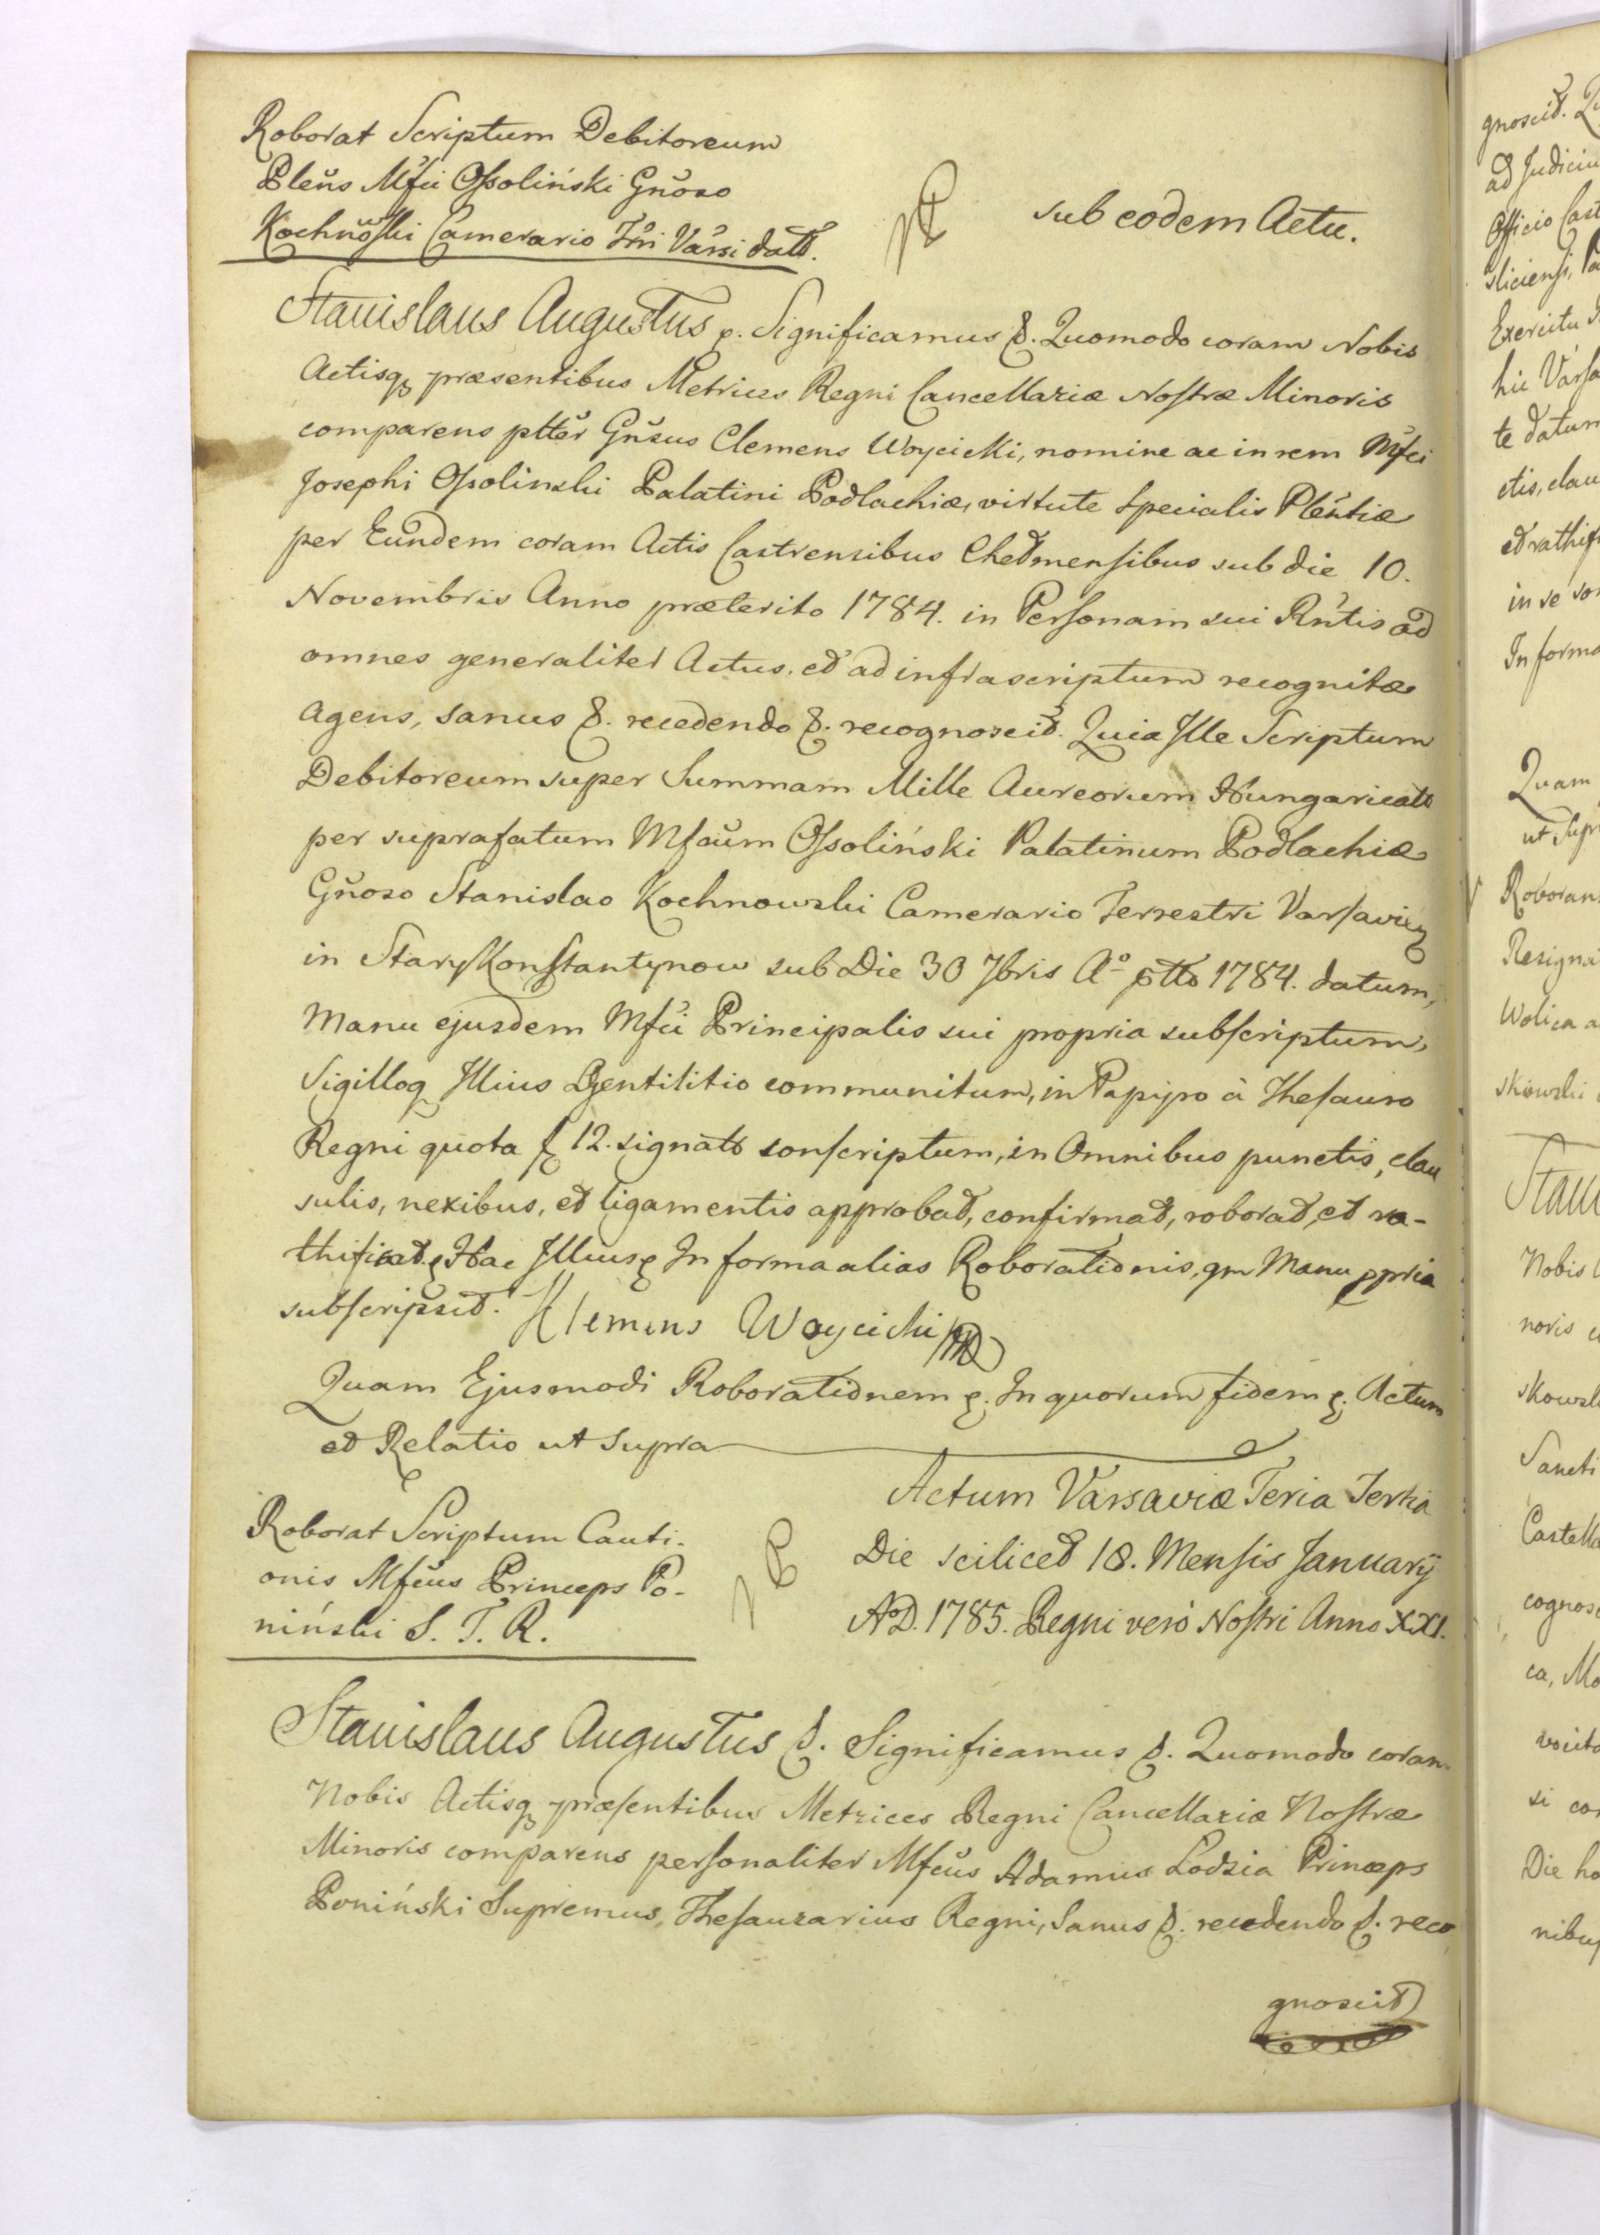 Roborat Scriptum Debitoreum
Pleñs Mfci Ossoliński Gñoso
Kochnowski Camerario Trri Varsi dat.
sub eodem Actu.
Stanislaus Augustus &. Significamus &. Quomodo coram Nobis
Actisq præsentibus Metrices Regni Cancellariæ Nostræ Minoris
comparens pltter Gñsus Clemens Woycicki, nomine ac in rem Mfci
Josephi Ossolinski Palatini Podlachiæ, virtute Specialis Plentiæ
per Eundem coram Actis Castrensibus Chelmensibus sub die 10.
Novembris Anno præterito 1784. in Personam sui Rñtis ad
omnes generaliter Actus, et ad infrascriptum recognitæ
Agens, sanus &. recedendo &. recognoscit. Quia Ille Scriptum
Debitoreum super Summam Mille Aureorum Hungaricall
per suprafatum Mfcum Ossoliński Palatinum Podlachiæ
Gñoso Stanislao Kochnowski Camerario Terrestri Varsavien
in Stary Konstantynow sub Die 30 7bris Aº ptto 1784. datum,
Manu ejusdem Mfci Principalis sui propria subscriptum,
Sigilloq Illius Gentilitio communitum, in Papyro à Thesauro
Regni quota f 12. signato conscriptum, in Omnibus punctis, clau
sulis, nexibus, et ligamentis approbat, confirmat, roborat, et ra-
thificat. Hac Illius In forma alias Roborationis, qm Manu ppria
subscripsit. Klemens Woycicki
Quam Ejusmodi Roborationem &. In quorum fidem &. Actum
et Relatio ut supra
Roborat Scriptum Cauti-
onis Mfcus Princeps Po-
niński S. T. R.
Actum Varsaviæ Feria Tertia
Die scilicet 18. Mensis Januarÿ
AºD. 1785. Regni verò Nostri Anno XXI.
Stanislaus Augustus &. Significamus &. Quomodo coram
Nobis Actisq præsentibus Metrices Regni Cancellariæ Nostræ
Minoris comparens personaliter Mfcus Adamus Lodzia Princeps
Poniński Supremus, Thesaurarius Regni, Sanus &. recedendo &. reco
gnoscit